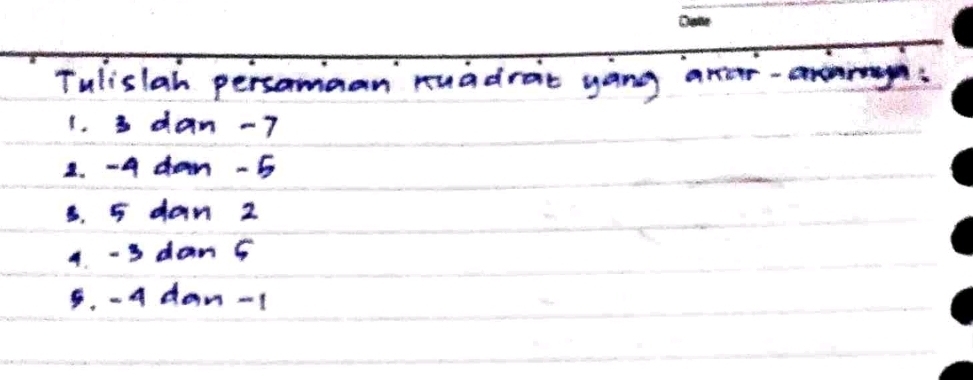 Date
Tulislah persamaan kuadrat yang akar-akarnya:
1. 3 dan -7
2. -4 dan -5
3. 5 dan 2
4. -3 dan 5
5. -4 dan -1